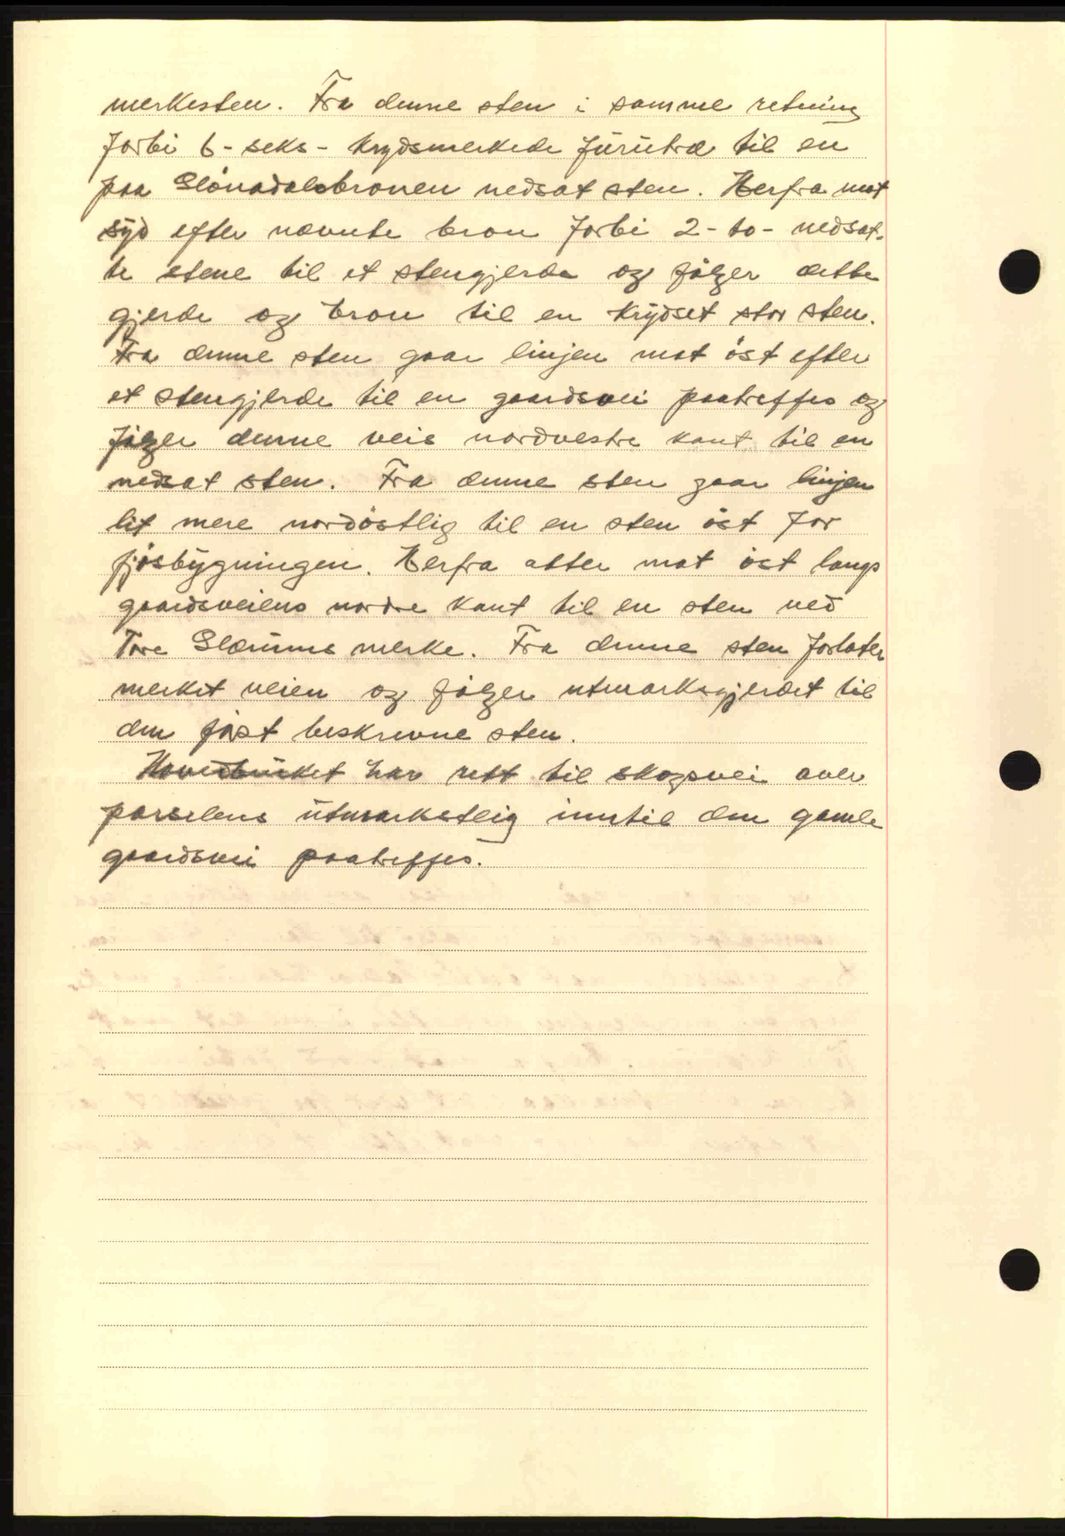 merkesten. Fra denne sten i samme retning
forbi 6 - seks - krydsmerkede furutræ til en
paa Slönadalsbronen nedsat sten. Herfra mot
syd efter nævnte bron forbi 2 - to - nedsat-
te stene til et stengjerde og fölger dette
gjerde og bron til en krydset stor sten.
Fra denne sten gaar linjen mot öst efter
et stengjerde til en gaardsvei paatreffes og
fölger denne veis nordvestre kant til en
nedsat sten. Fra denne sten gaar linjen
lit mere nordöstlig til en sten öst for
fjösbygningen. Herfra atter mot öst langs
gaardsveiens nordre kant til en sten ved
Tore Slæmms merke. Fra denne sten forlater
merket veien og fölger utmarksgjerdet til
den först beskrevne sten.
Hovedbruket har rett til skogsvei over
parselens utmarksteig inntil den gamle
gaardsvei paatreffes.